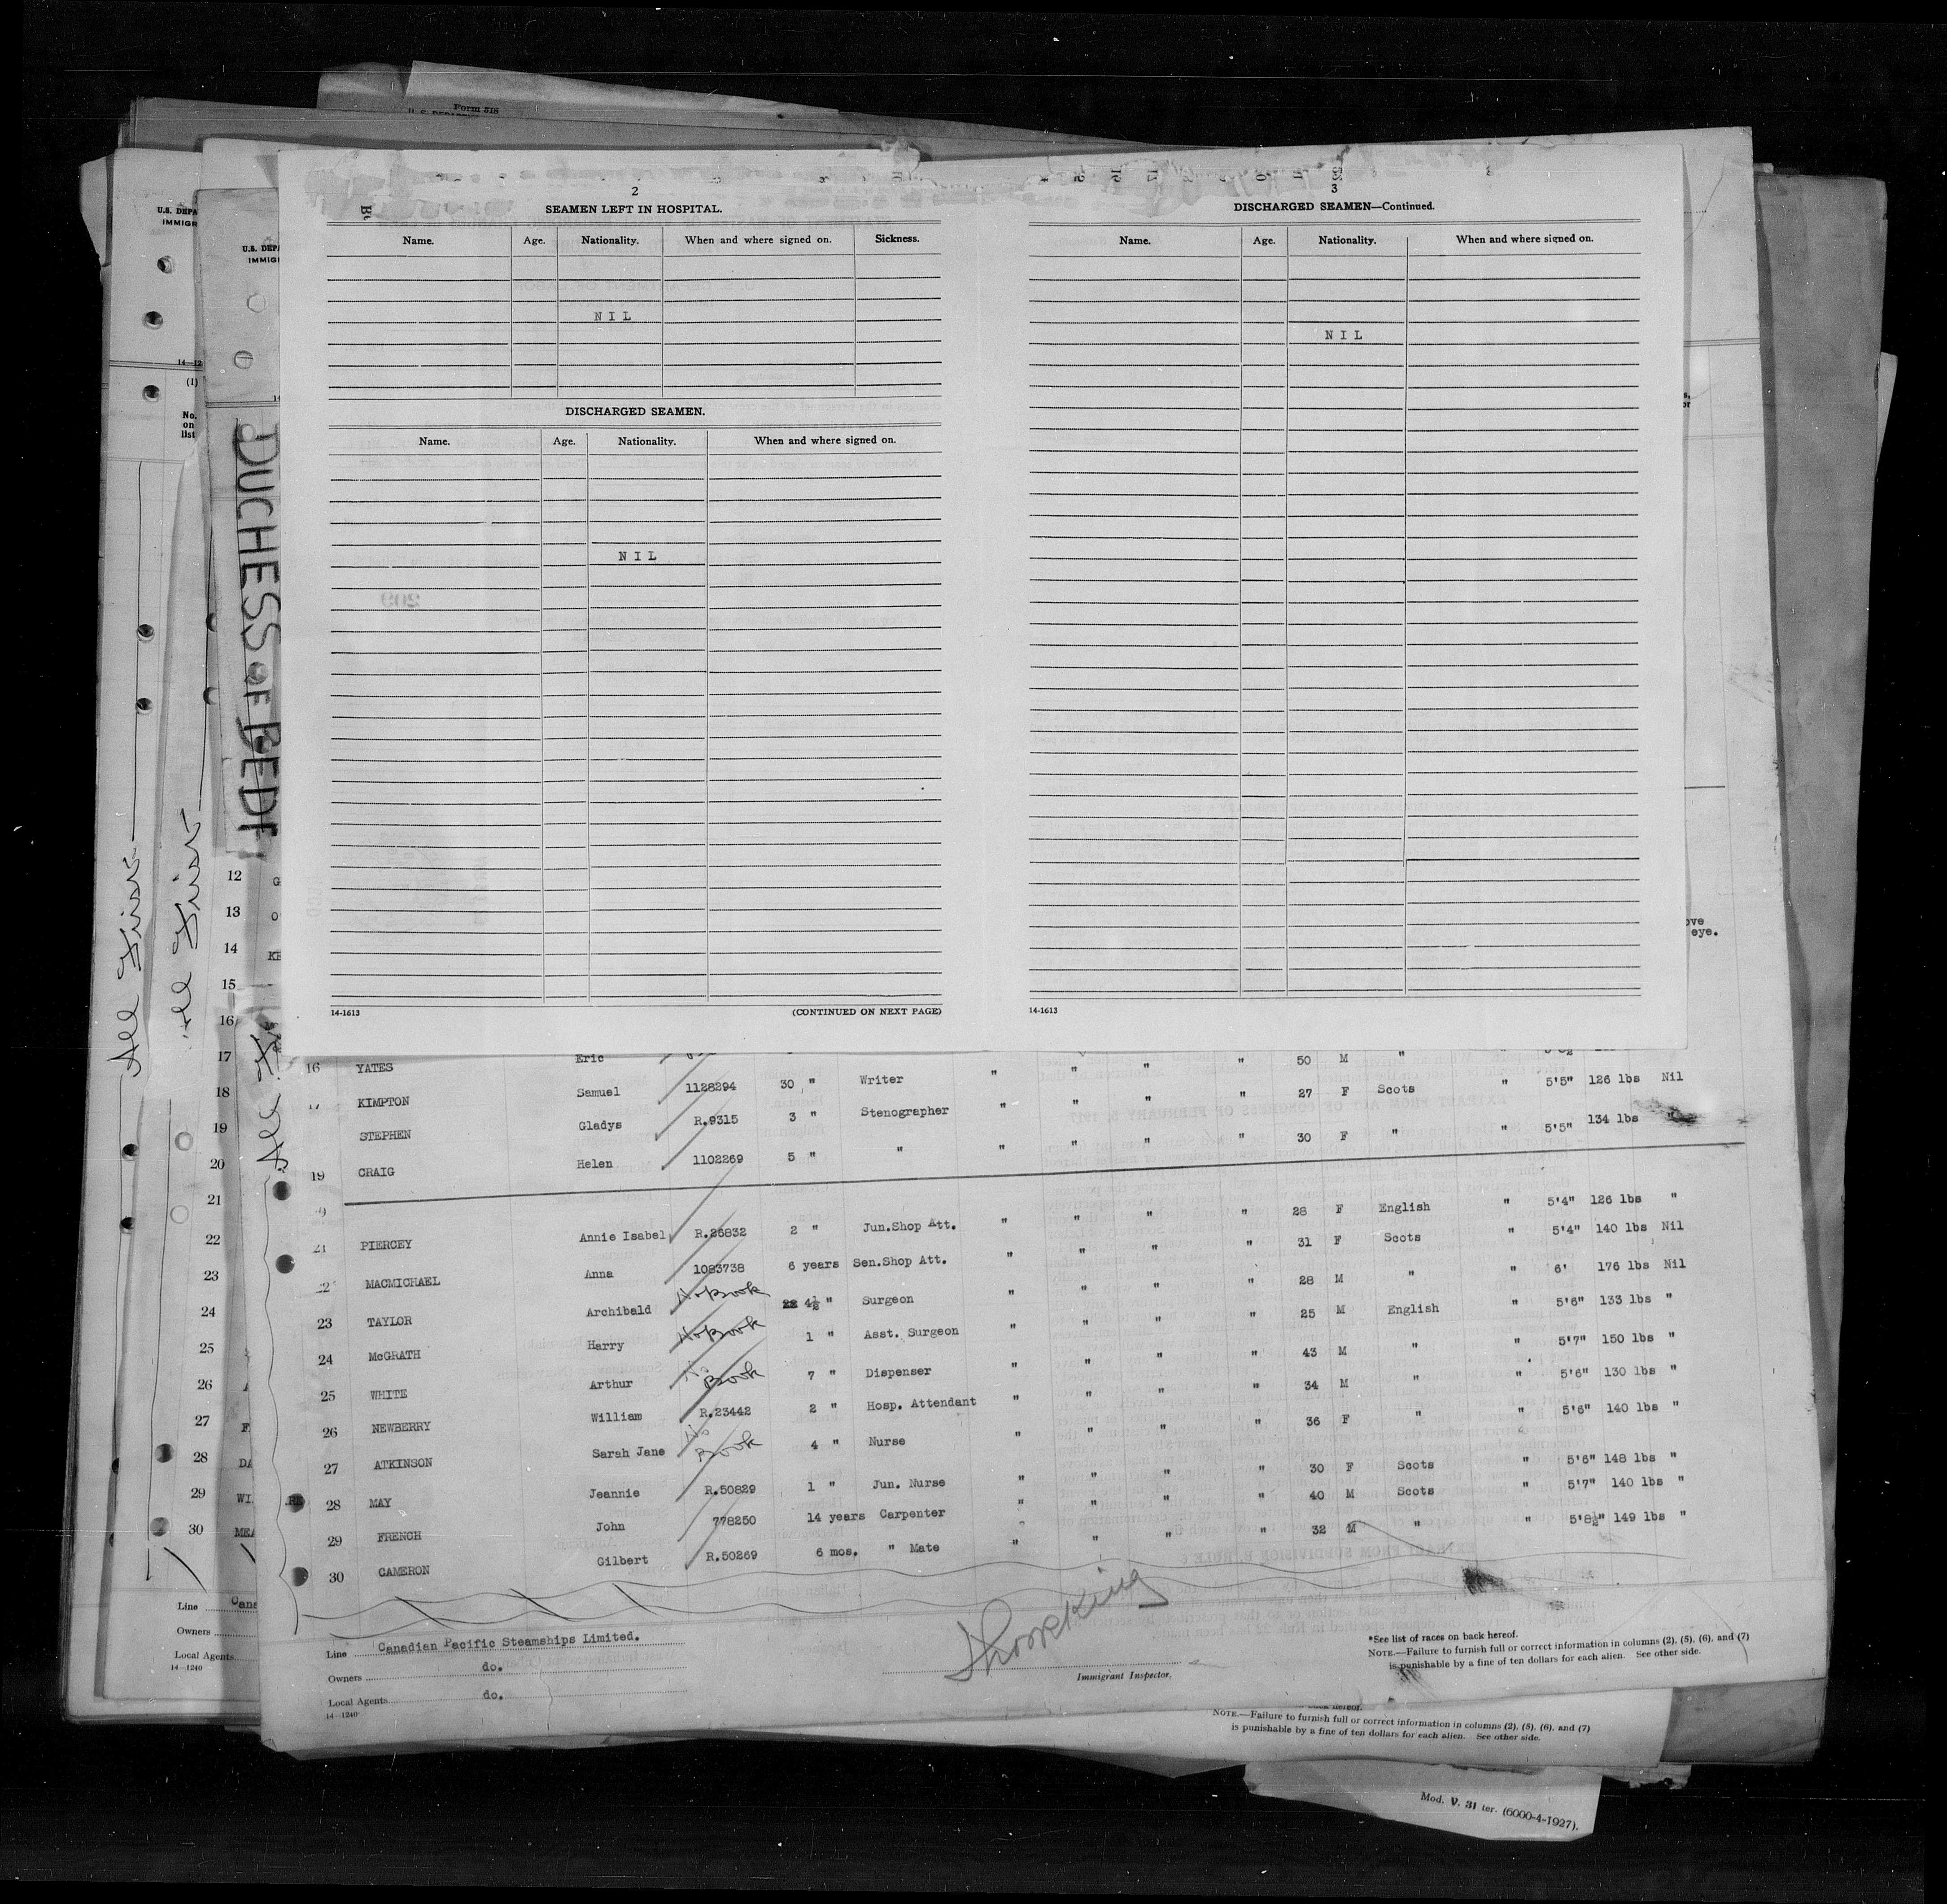 Form 518
U. S. DEPARTM
U.S. DEPA
IMMIGR
U.S. DEPA
IMMIG
14—12
(1)
No.
on
list
DUCHESS OF BEDF
All First
All First
2
SEAMEN LEFT IN HOSPITAL.
Name. Age. Nationality. When and where signed on. Sickness.
NIL
DISCHARGED SEAMEN.
Name. Age. Nationality. When and where signed on.
NIL
14-1613 (CONTINUED ON NEXT PAGE)
3
DISCHARGED SEAMEN—Continued.
Name. Age. Nationality. When and where signed on.
NIL
14-1613
ove
eye.
12 G
13 O
14 KE
15
16
17
18
19
20
21
22
23
24
25
26
27 F
28 DA
29 WI
30 MEA
16 YATES Eric " " " 50 M " "
17 KIMPTON Samuel 1128294 30 " Writer " " " " 27 F Scots " 5'5" 126 lbs Nil
STEPHEN Gladys R.9315 3 " Stenographer " " " " 30 F " " 5'5" 134 lbs "
19 CRAIG Helen 1102269 5 " " " " "
21 PIERCEY Annie Isabel R.26832 2 " Jun.Shop Att. " " " " 28 F English " 5'4" 126 lbs "
22 MACMICHAEL Anna 1083738 6 years Sen.Shop Att. " " " " 31 F Scots " 5'4" 140 lbs Nil
23 TAYLOR Archibald No Book 4½ " Surgeon " " " " 28 M " " 6' 176 lbs Nil
24 McGRATH Harry No Book 1 " Asst. Surgeon " " " " 25 M English " 5'6" 133 lbs "
25 WHITE Arthur No Book 7 " Dispenser " " " " 43 M " " 5'7" 150 lbs "
26 NEWBERRY William R.23442 2 " Hosp. Attendant " " " " 34 M " " 5'6" 130 lbs "
27 ATKINSON Sarah Jane No Book 4 " Nurse " " " " 36 F " " 5'6" 140 lbs "
28 MAY Jeannie R.50829 1 " Jun. Nurse " " " " 30 F Scots " 5'6" 148 lbs "
29 FRENCH John 778250 14 years Carpenter " " " " 40 M Scots " 5'7" 140 lbs "
30 CAMERON Gilbert R.50269 6 mos. " Mate " " " " 32 M " " 5'8½" 149 lbs "
Line Cana
Owners
Local Agents
14—1240
Line Canadian Pacific Steamships Limited.
Owners do.
Local Agents do.
14—1240
Immigrant Inspector.
*See list of races on back hereof.
NOTE.—Failure to furnish full or correct information in columns (2), (5), (6), and (7)
is punishable by a fine of ten dollars for each alien. See other side.
back hereof.
NOTE.—Failure to furnish full or correct information in columns (2), (5), (6), and (7)
is punishable by a fine of ten dollars for each alien. See other side.
Mod. V. 31 ter. (6000-4-1927).